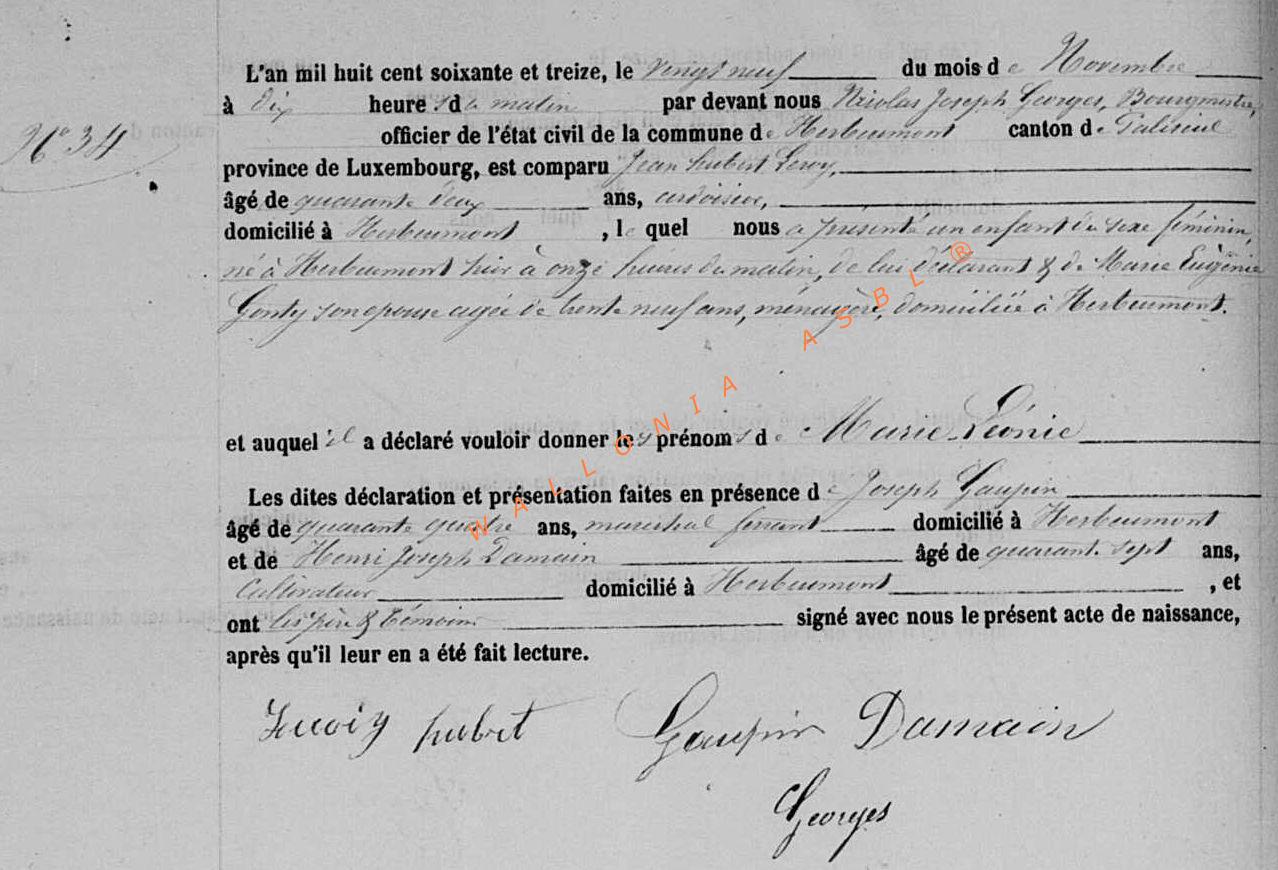 L'an mil huit cent soixante et treize, le vingt neuf du mois de Novembre
à dix heures du matin par devant nous Nicolas Joseph Georges, Bourgmestre,
N° 34
officier de l'état civil de la commune de Herbeumont canton de Paliseul
province de Luxembourg, est comparu Jean hubert Leroy,
âgé de quarante deux ans, ardoisier,
domicilié à Herbeumont, le quel nous a présenté un enfant du sexe féminin,
né à Herbeumont hier à onze heures du matin, de lui déclarant & de Marie Eugénie
Gonty son épouse agée de trente neuf ans, ménagère, domiciliée à Herbeumont.
WALLONIA ASBL ®
et auquel il a déclaré vouloir donner les prénoms de Marie Léonie
Les dites déclaration et présentation faites en présence de Joseph Gaupin
âgé de quarante quatre ans, maréchal ferrant domicilié à Herbeumont
et de Henri Joseph Damain âgé de quarante sept ans,
Cultivateur domicilié à Herbeumont, et
ont les père & témoins signé avec nous le présent acte de naissance,
après qu'il leur en a été fait lecture.
hubert Gaupin Damain
Georges